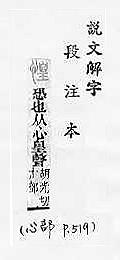 説文解字
段注本
惶
恐也从心皇聲
胡光切
十部
(心部 P.519)